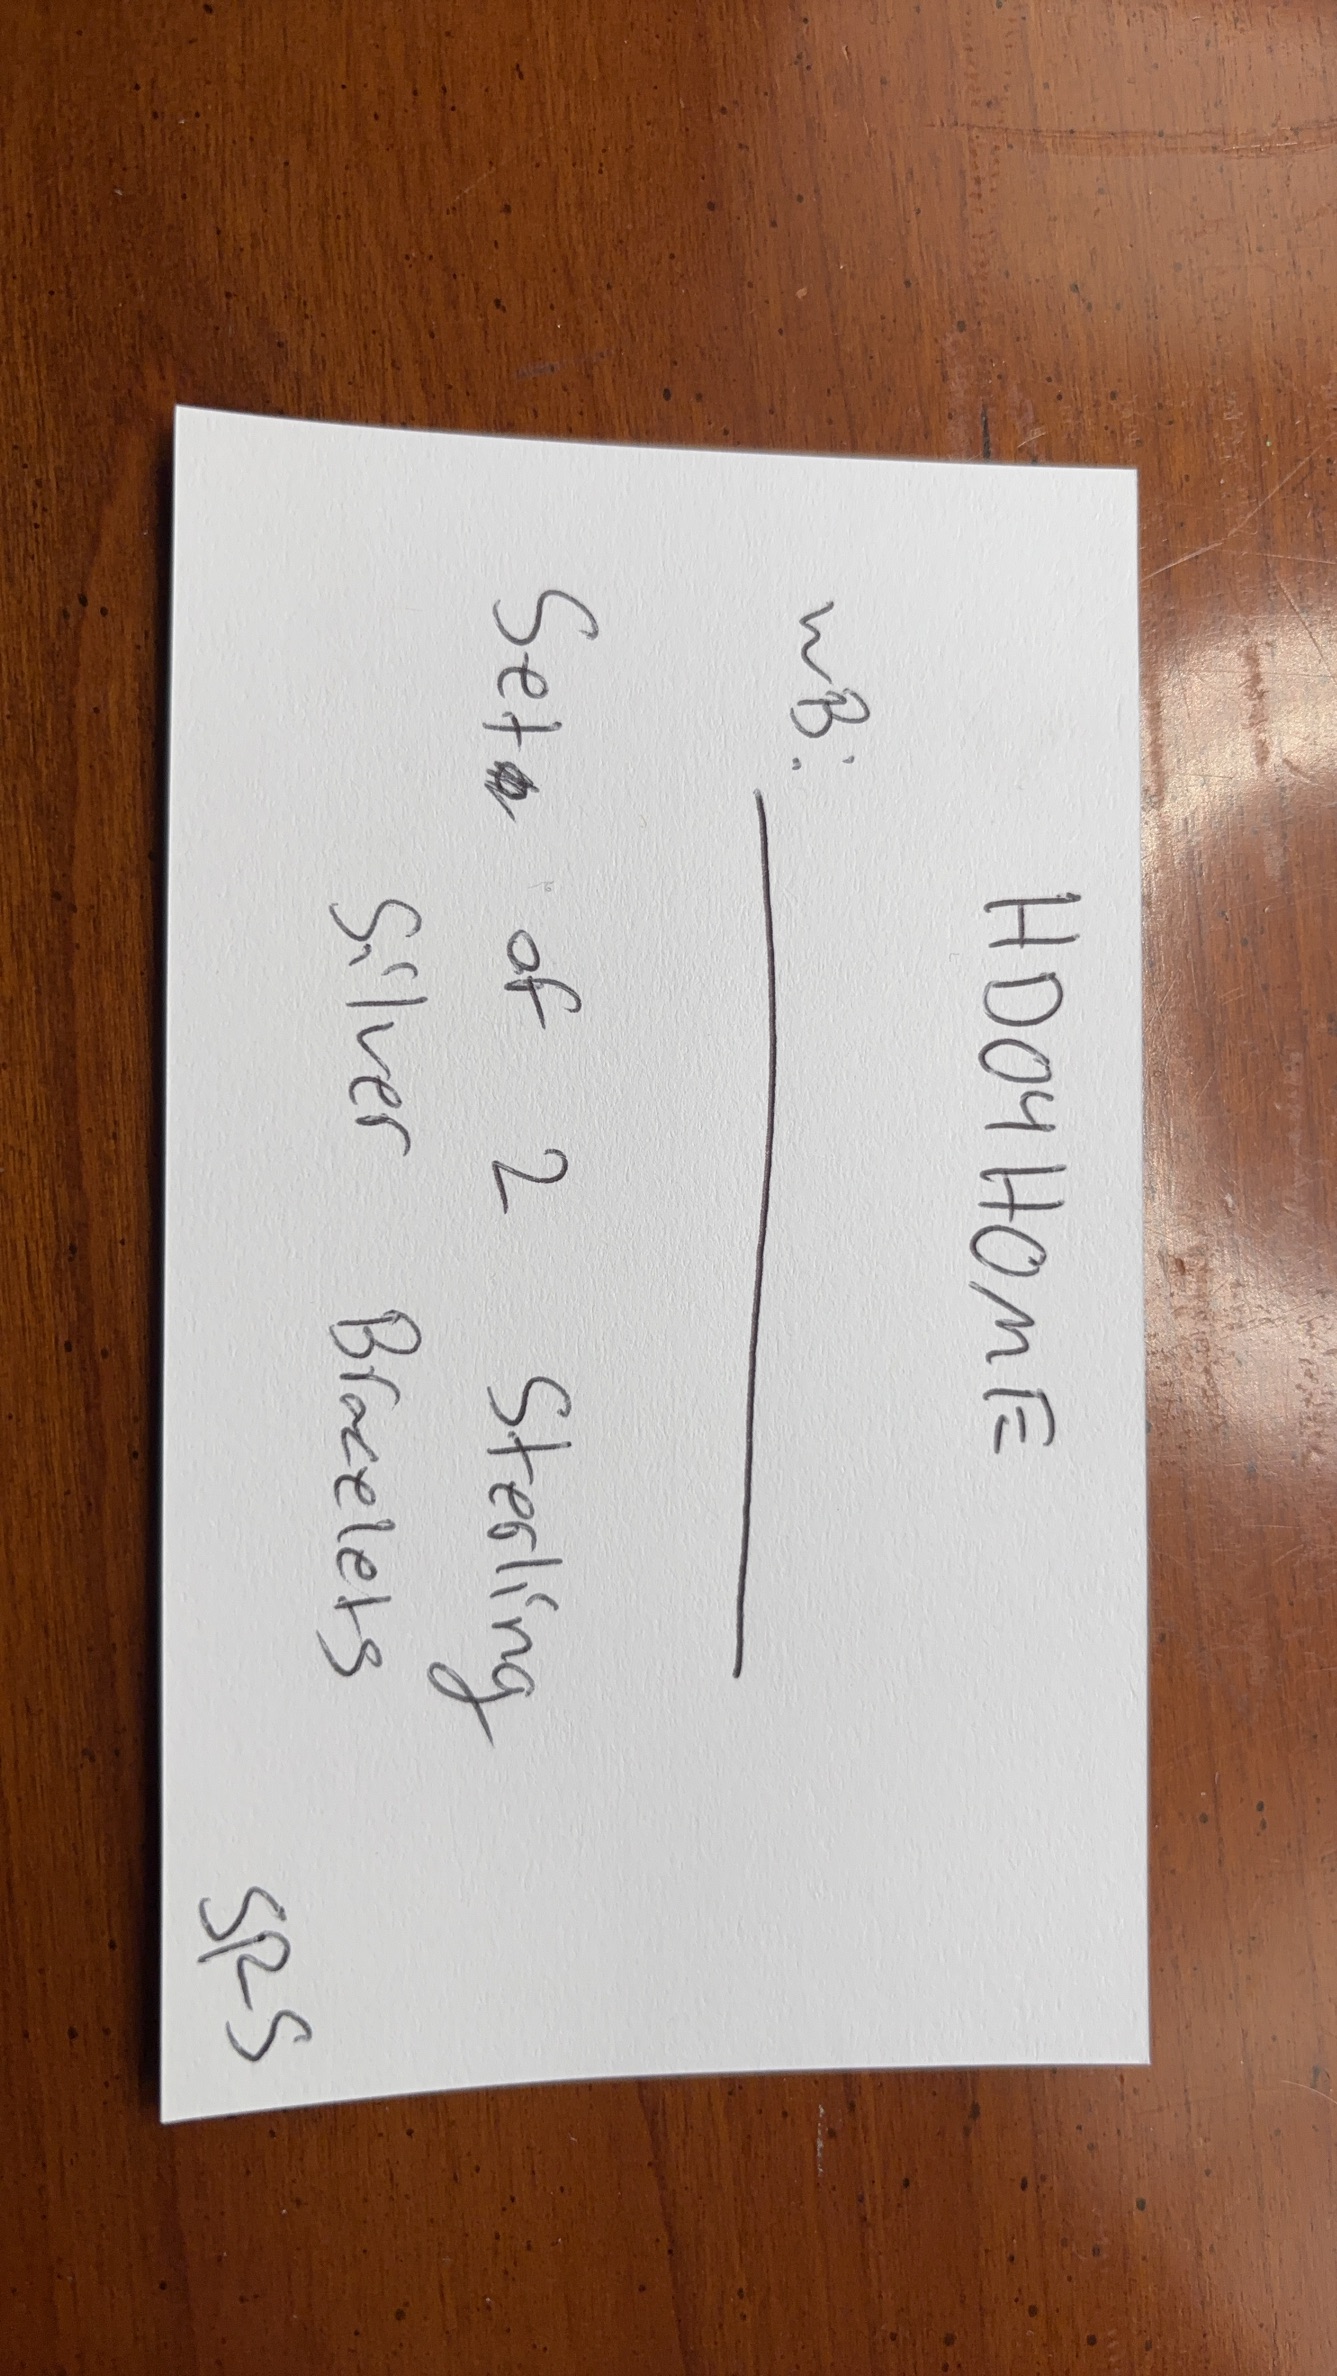 HD04HOME
WB:
Set of 2 Sterling
Silver Bracelets
SP-S